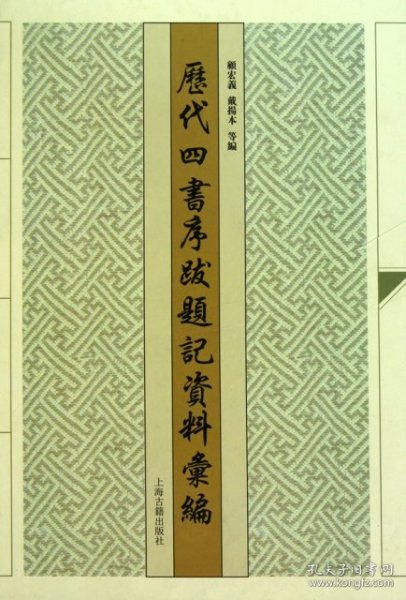 顧宏義 戴揚本 等編
歷代四書序跋題記資料彙編
上海古籍出版社
孔夫子旧书网
www.kongfz.com